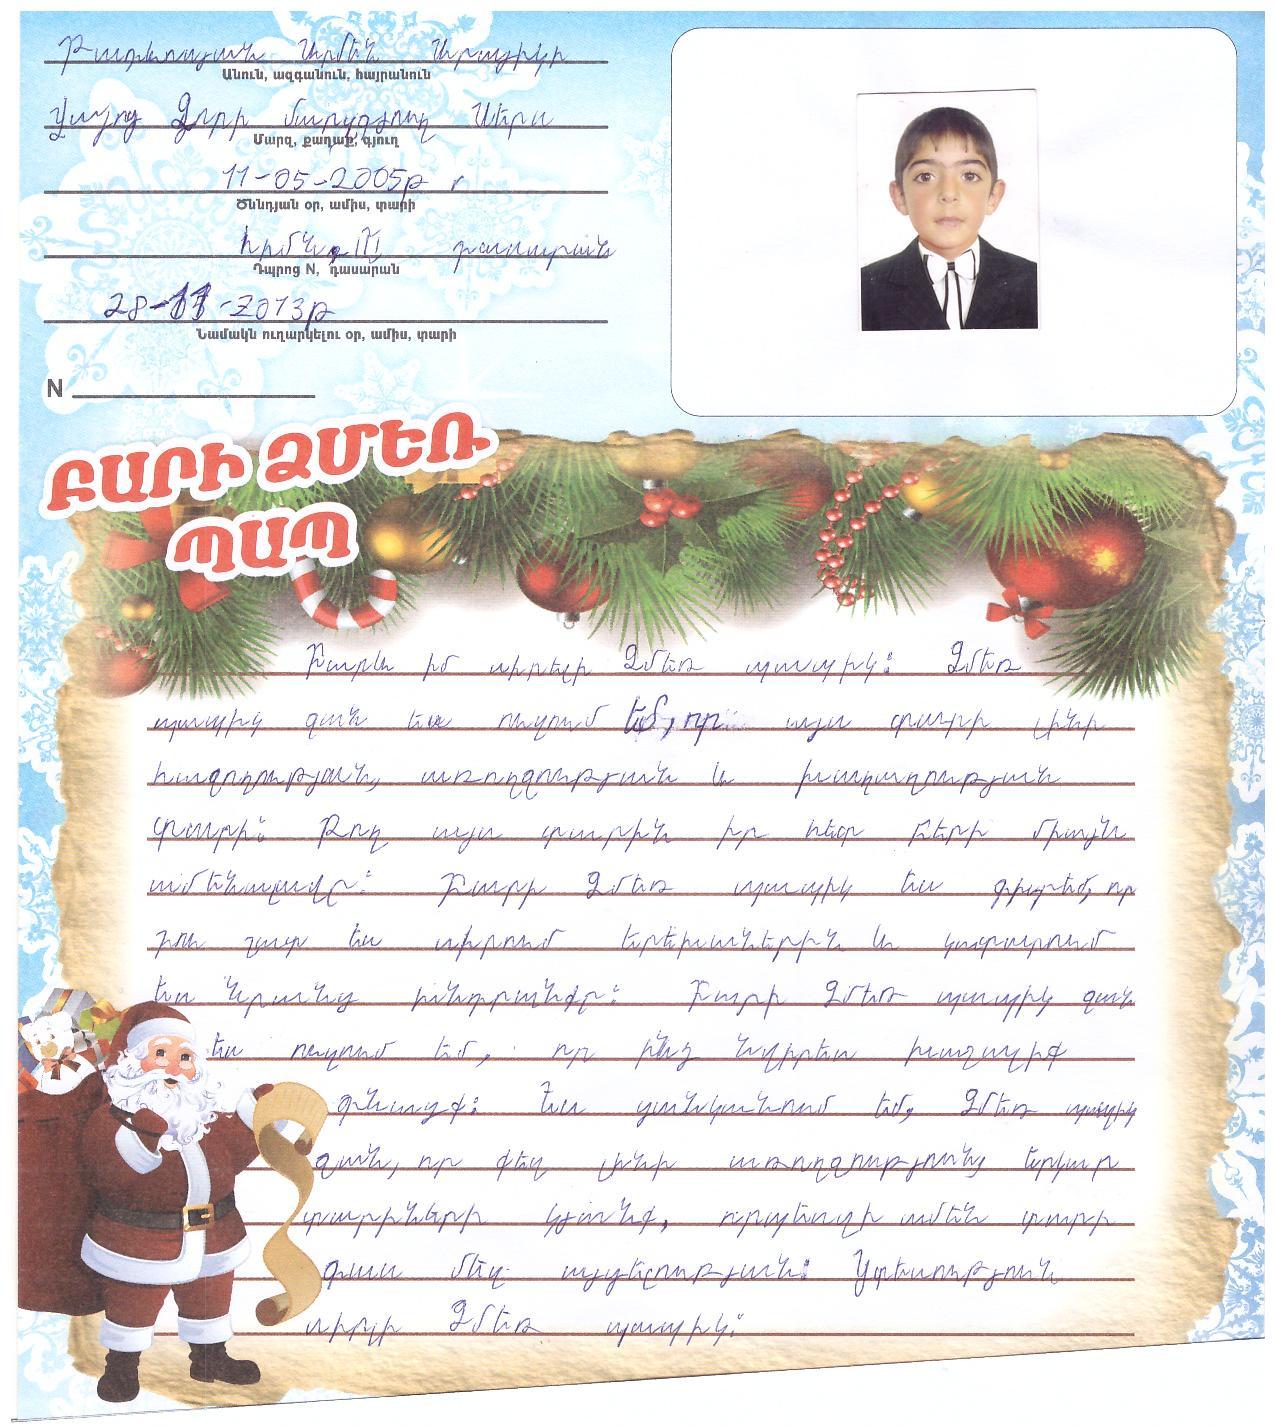 Թադևոսյան Արմեն Արայիկի
Անուն, ազգանուն, հայրանուն
Վայոց Ձորի մարզգյուղ Մերս
Մարզ, քաղաք, գյուղ
11-05-2005թ
Ծննդյան օր, ամիս, տարի
դասարան
Դպրոց N, դասարան
28-11-2013թ
Նամակն ուղարկելու օր, ամիս, տարի
N
ԲԱՐԻ ՁՄԵՌ
ՊԱՊ
Բարև իմ սիրելի Ձմեռ պապիկ: Ձմեռ
պապիկ ջան ես ուզում եմ, որ այս տարի լինի
հաջողության, առողջության և խաղաղության
տարի: Թող այս տարին իր հետ բերի միայն
ամենալավը: Բարի Ձմեռ պապիկ ես գիտեմ, որ
դու շատ ես սիրում երեխաներին և կատարում
ես նրանց խնդրանքը: Բարի Ձմեռ պապիկ ջան
ես ուզում եմ, որ ինձ նվիրես խաղալիք
գնացք: Ես ցանկանում եմ, Ձմեռ պապիկ
ջան, որ քեզ լինի առողջություն, երկար
տարիների կյանք, որպեսզի ամեն տարի
գաս մեզ այցելության: Ցտեսություն
սիրլի Ձմեռ պապիկ: